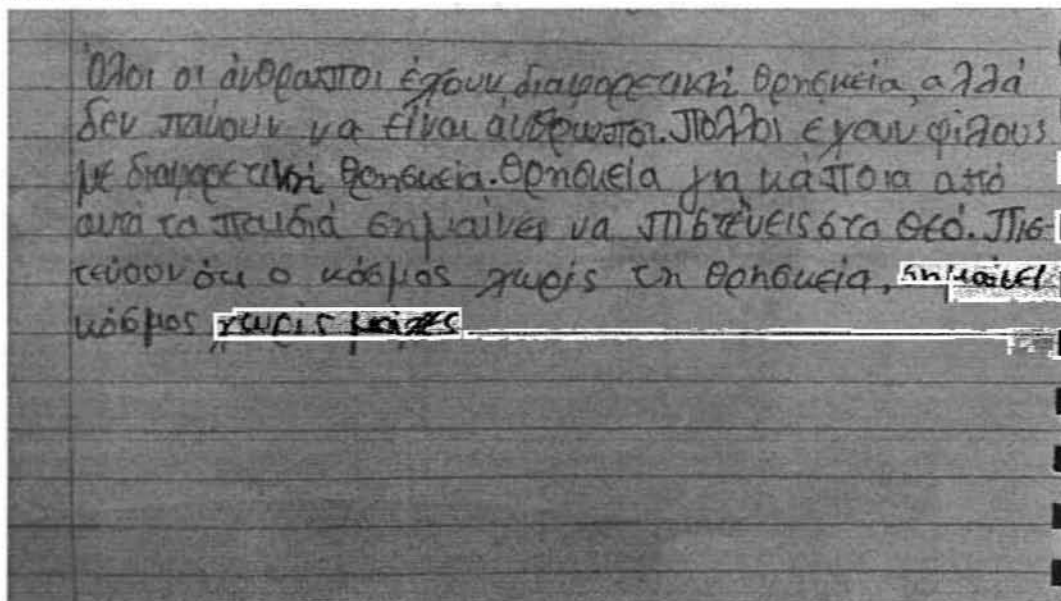 Όλοι οι άνθρωποι έχουν διαφορετική θρησκεία, αλλά
δεν παύουν να είναι άνθρωποι. Πολλοί έχουν φίλους
με διαφορετική θρησκεία. Θρησκεία για κάποια από
αυτά τα παιδιά σημαίνει να πιστεύεις στο θεό. Πισ-
τεύουν ότι ο κόσμος χωρίς τη θρησκεία, σημαίνει
κόσμος χωρίς μάχες